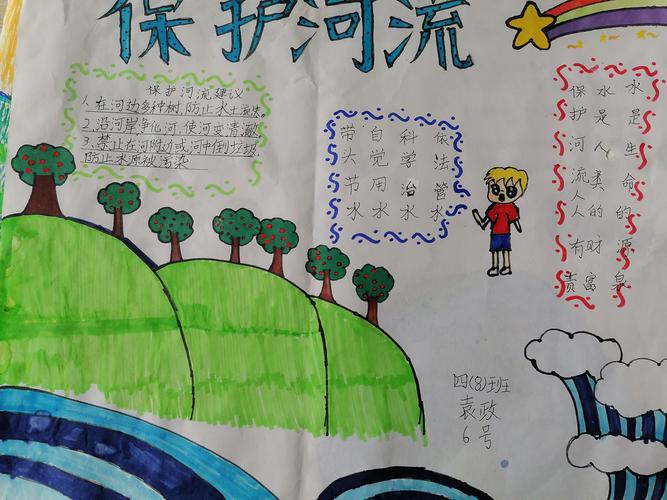 保护河流
保护河流建议
1.在河边多种树,防止水土流失。
2.沿河岸净化河,使河变清澈
3.禁止在河附近或河中倒垃圾,
防止水源被污染
依法管水
科学治水
自觉用水
带头节水
水是生命的源泉
水是人类的财富
保护河流人人有责
四(8)班
袁政
6号